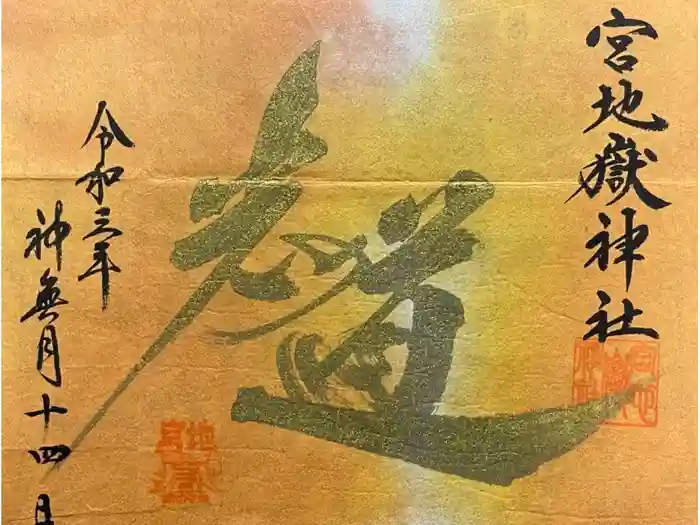 宮地嶽神社
光道
令和三年
神無月十四日